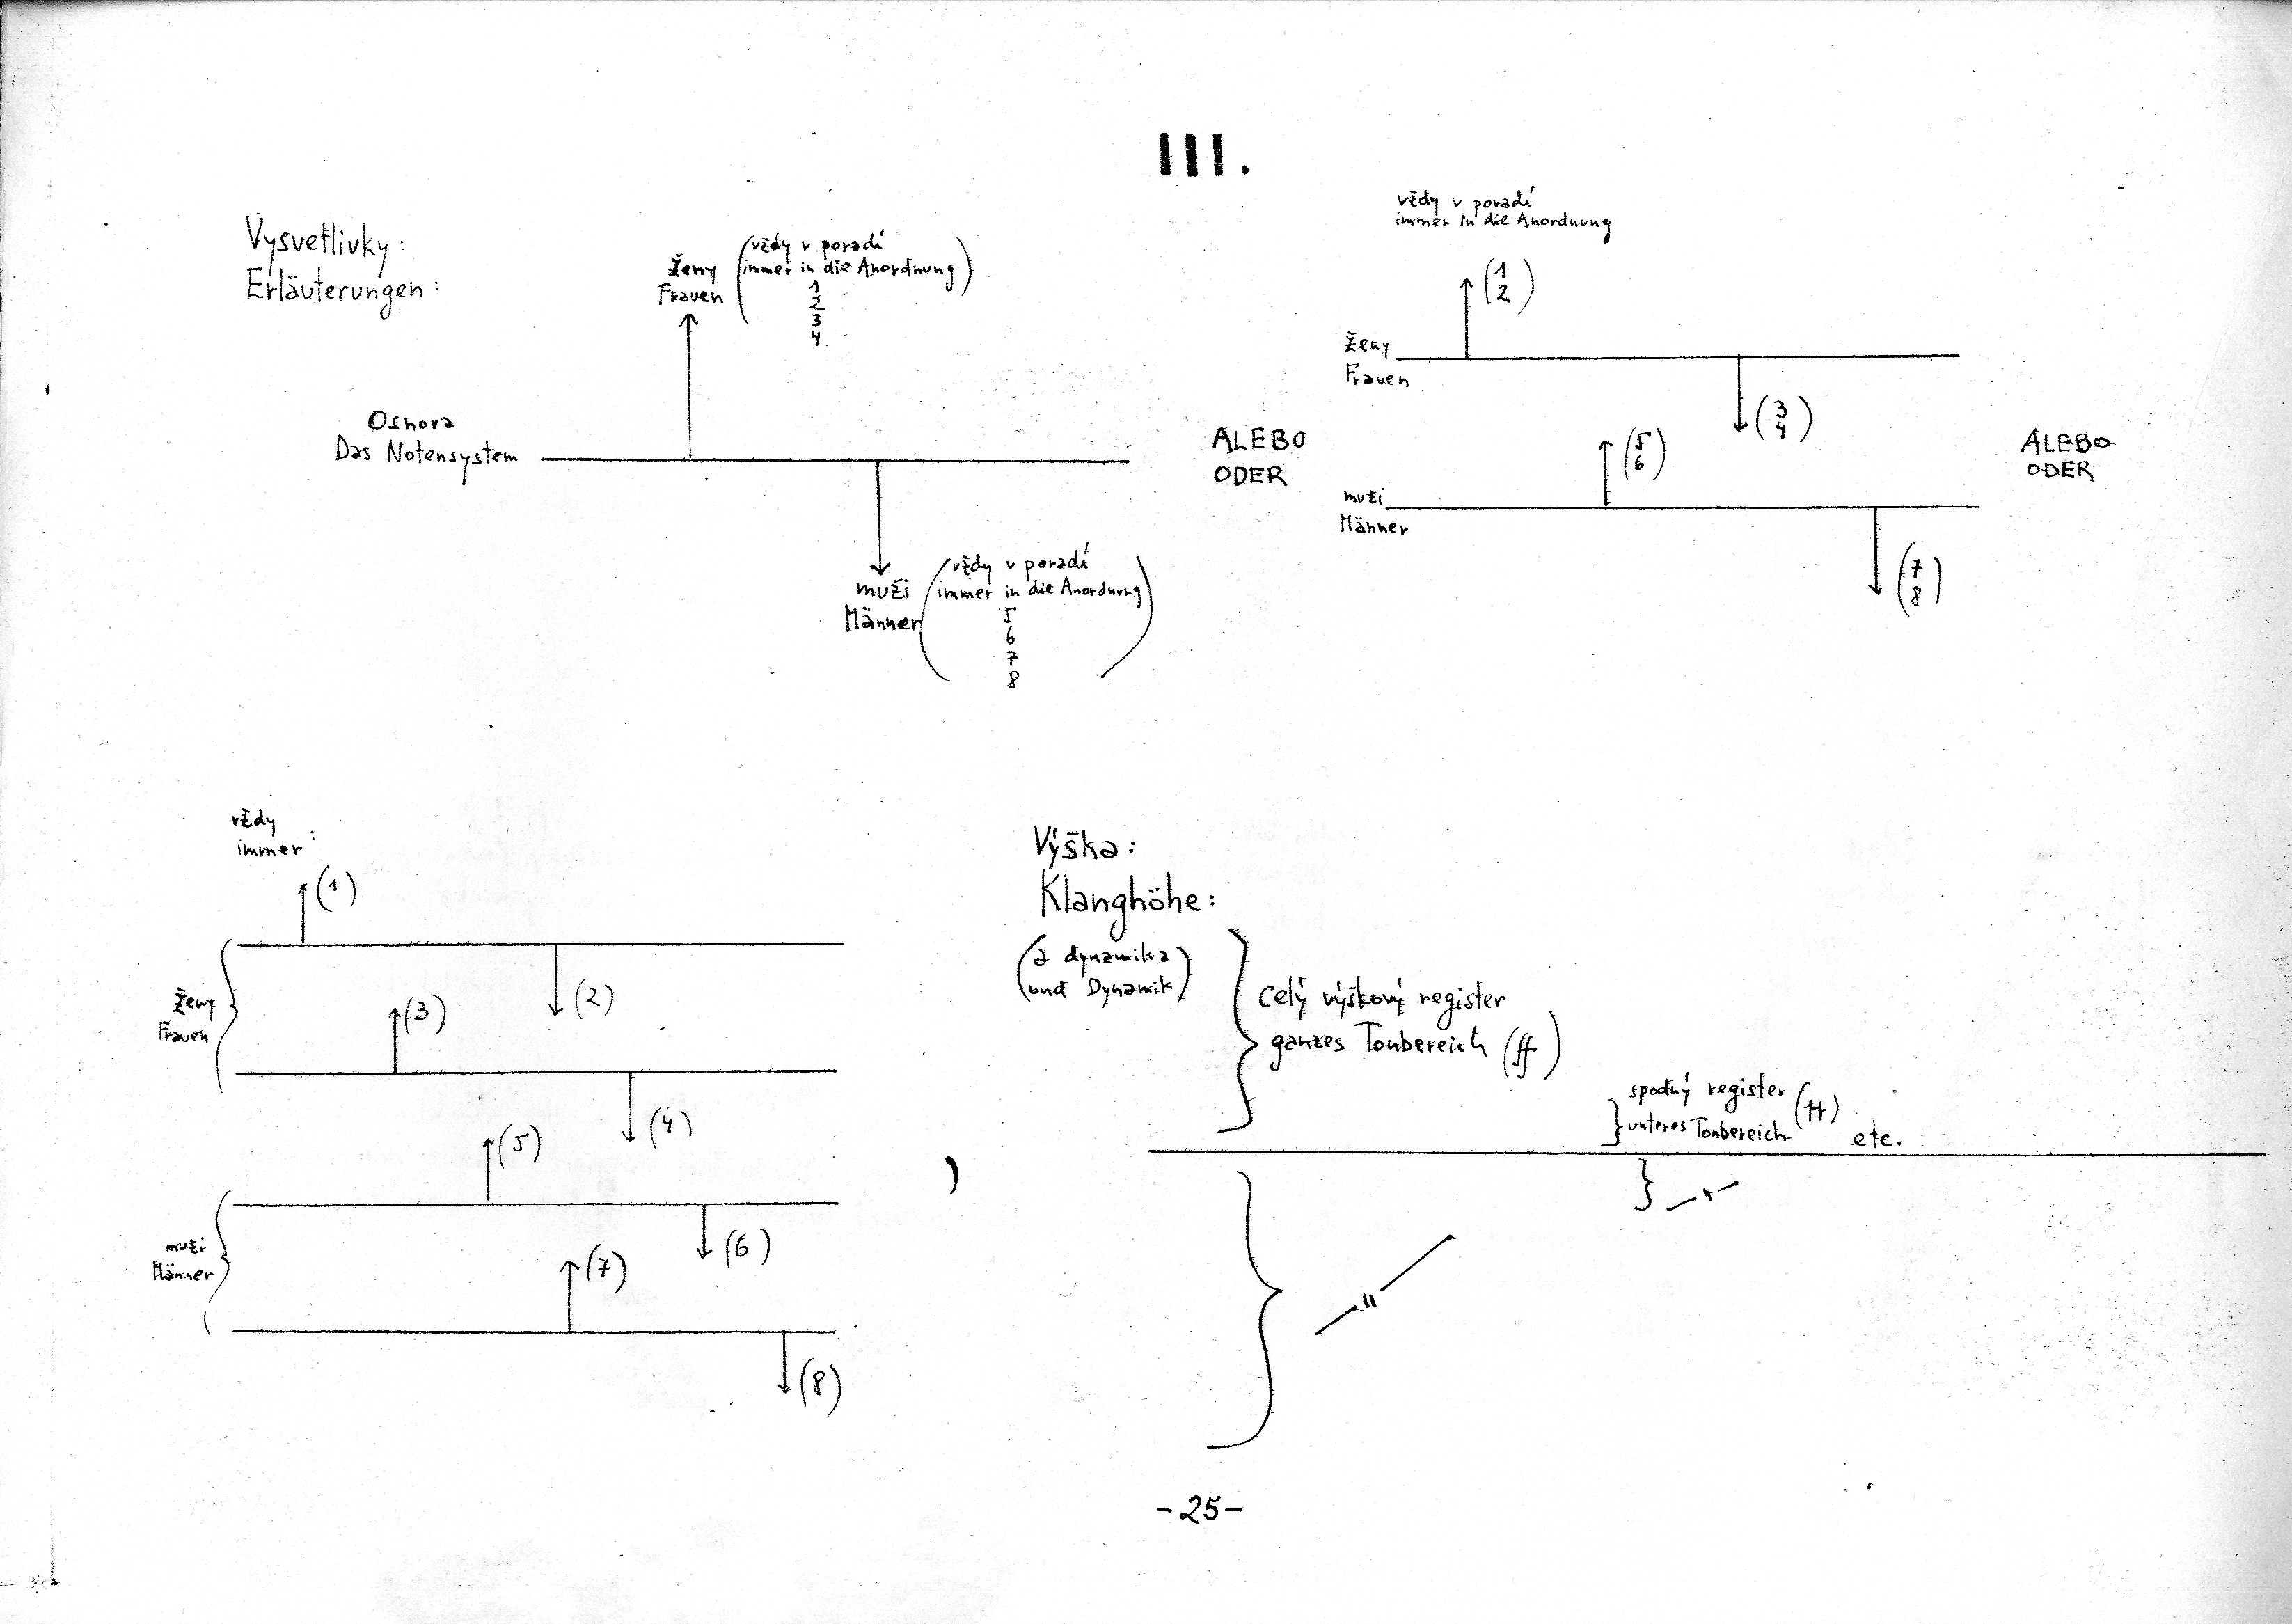 III.
Vysvetlivky:
Erläuterungen:
ženy
Frauen
(vždy v poradí
immer in die Anordnung)
1
2
3
4
Osnova
Das Notensystem
muži
Männer
(vždy v poradí
immer in die Anordnung
5
6
7
8)
ALEBO
ODER
vždy v poradí
immer in die Anordnung
(1
2)
ženy
Frauen
(3
4)
(5
6)
muži
Männer
(7
8)
ALEBO
ODER
vždy
immer :
(1)
ženy
Frauen
(2)
(3)
(4)
(5)
muži
Männer
(6)
(7)
(8)
)
Výška:
Klanghöhe:
(a dynamika
und Dynamik)
celý výškový register
ganzes Tonbereich (ff)
spodný register
unteres Tonbereich
etc.
—"—
—"—
-25-